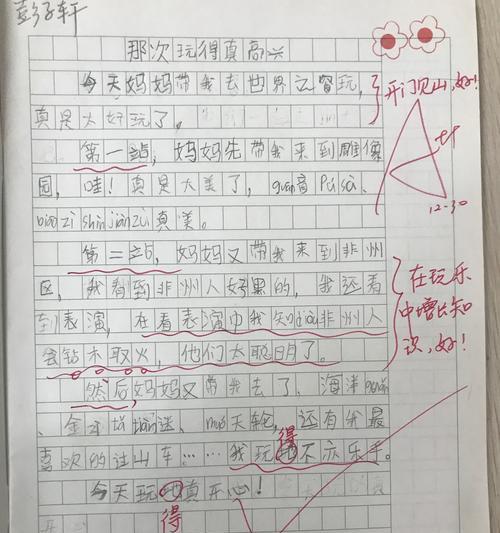 彭子轩
那次玩得真高兴
今天妈妈带我去世界之窗玩,
开门见山,好!
真是太好玩了。
第一站,妈妈先带我来到雕像
园,哇!真是太美了,guan音Pú sà、
zi shi jiàn zù真美。
12-30
第二站,妈妈又带我来到非州
区,我看到非州人好黑的,我还看
到表演,在看表演中我知dào非州人
会钻木取火,他们太聪明了。
在玩乐
中增长知
识,好!
然后妈妈又带我去了、海洋guǎn
、金字tǎ tàn迷、mó天轮,还有我最
喜欢的过山车……我玩地不亦乐乎。
得
今天玩地真开心!
得